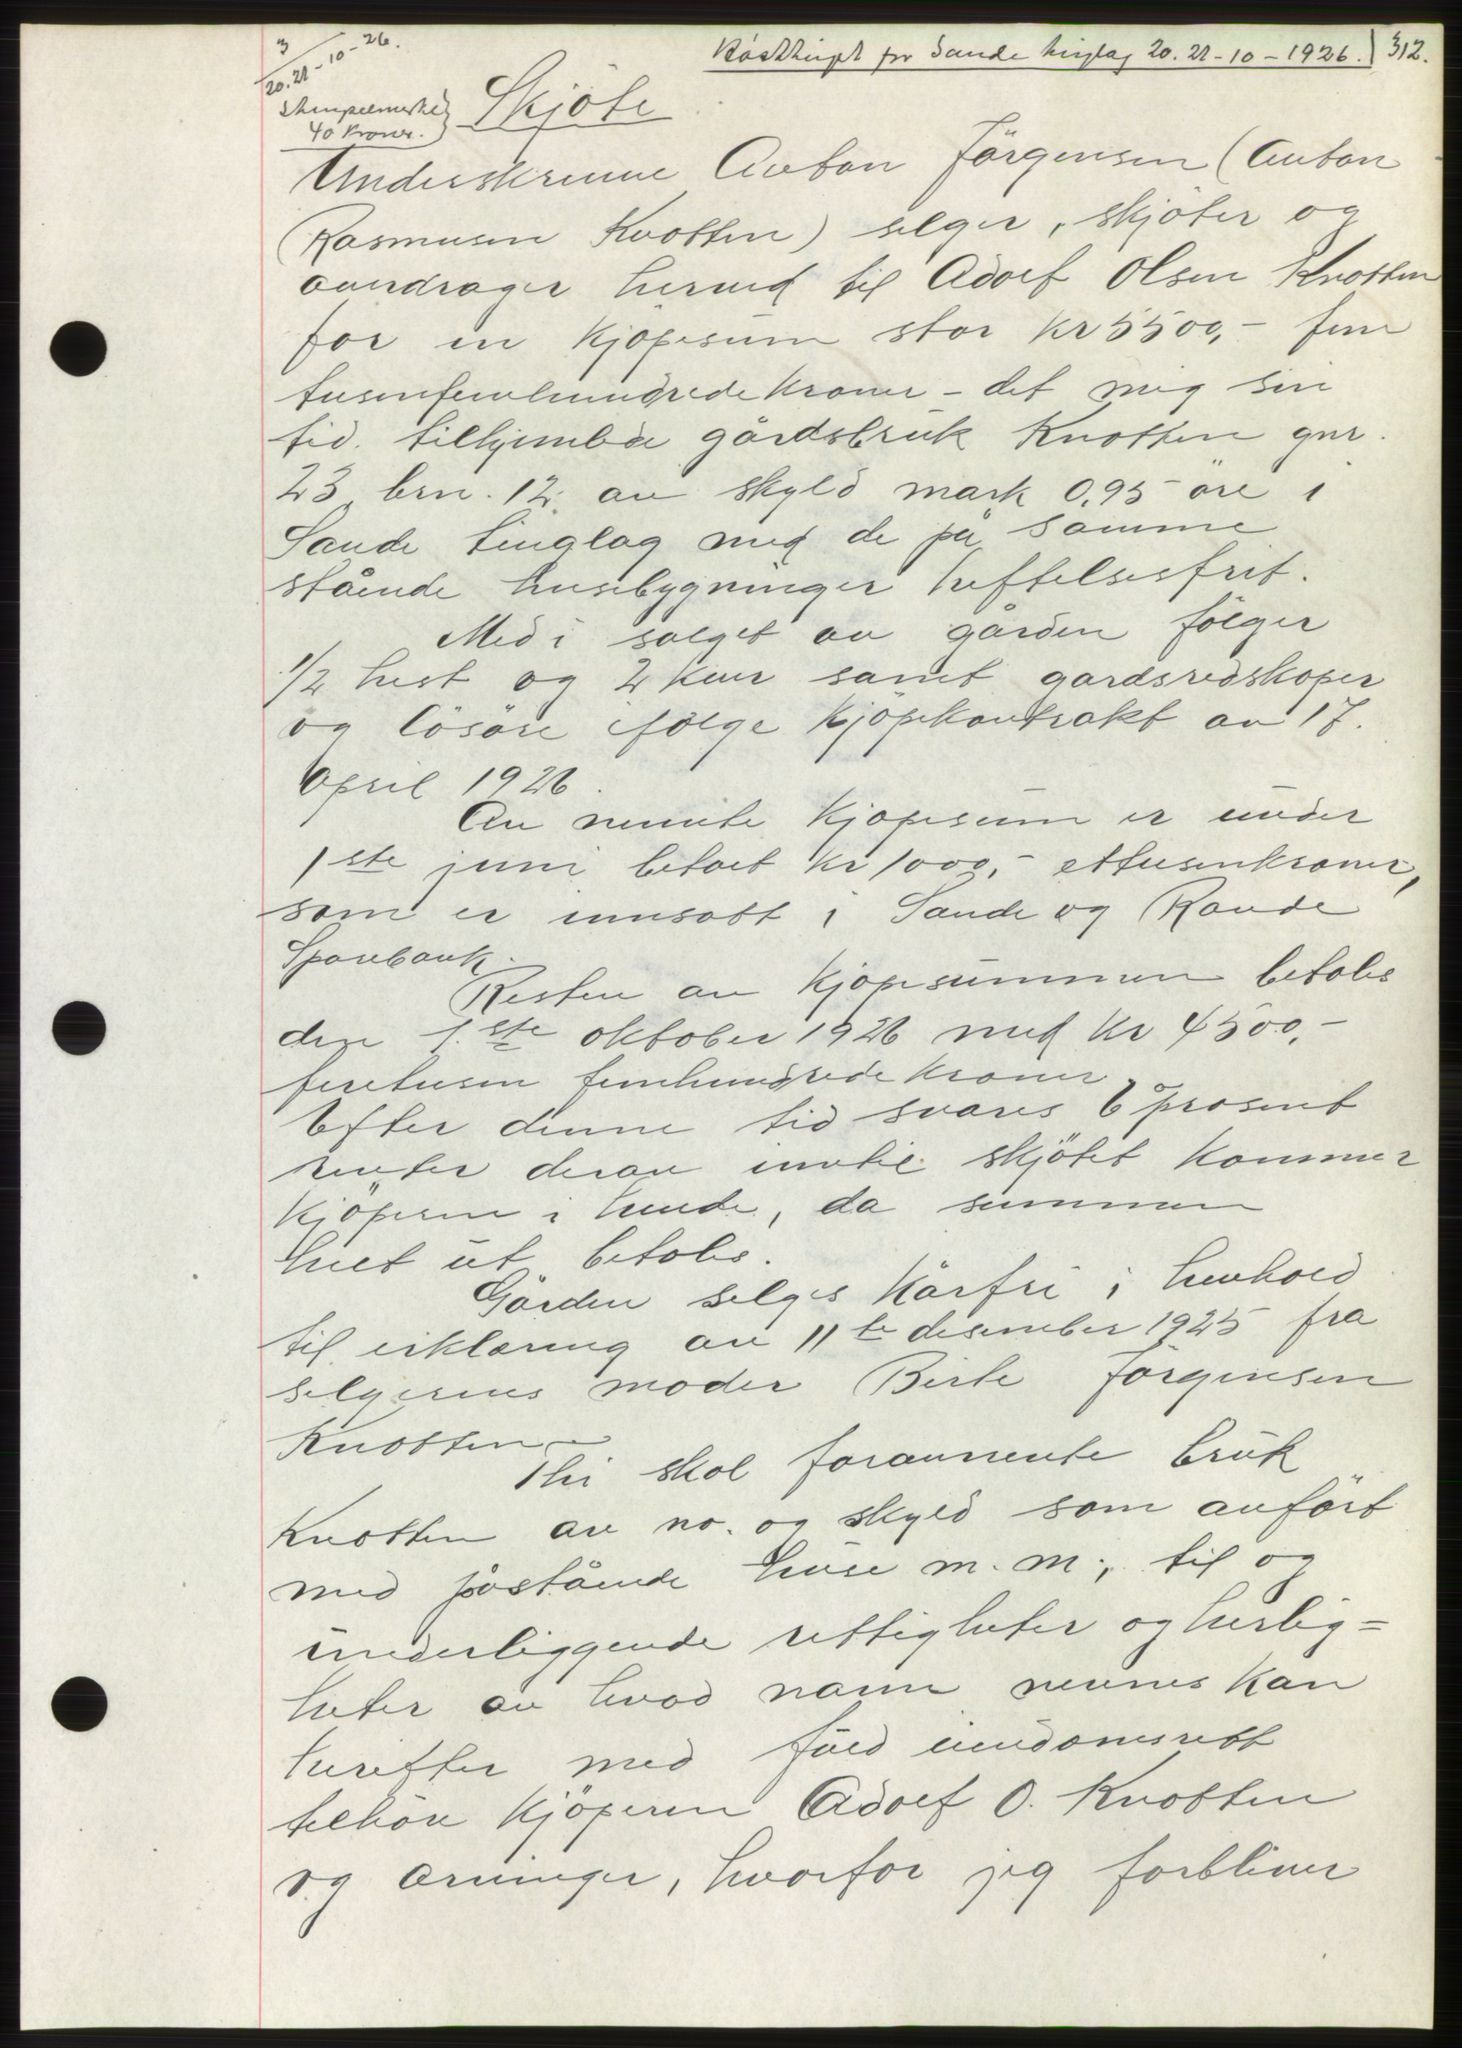 3
20.21-10-26.
Høsttinget for Sande tinglag 20.21-10-1926. 312.
Stempelmerke
40 kroner.
Skjöte
Underskrevne Anton Jörgensen (Anton
Rasmusen Knotten) selger, skjöter og
avendrager herved til Adolf Olsen Knotten
for en kjöpesum stor kr 5500,- fem
tusenfemhundrede kroner - det mig sin
tid tilhjemlede gårdsbruk Knotten gnr.
23 brn. 12. av skyld mark 0.95 öre i
Sande tinglag med de på samme
stående husebygninger heftelsesfrit.
Med i salget av gården fölger
1/2 hest og 2 kur samt gardsredskaper
og lösöre ifölge kjöpekontrakt av 17.
april 1926.
Av nevnte kjöpesum er under
1ste juni betalt kr 1000,- ettusenkroner,
som er innsatt i Sande og Rovde
Sparebank.
Resten av kjöpesummen betales
den 1.ste oktober 1926 med kr 4500,-
firetusen femhundrede kroner.
Efter denne tid svares 6 prosent
renter derav inntil skjötet kommer
kjöperen i hende, da summen
helt ut betales.
Gården selges kårfri i henhold
til erklæring av 11te desember 1925 fra
selgerens moder Birte Jörgensen
Knotten -
Thi skal forannevnte bruk
Knotten av no. og skyld som anfört
med påstående huse m. m., til og
underliggende rettigheter og herlig=
heter av hvad navn nevnes kan
herefter med full eiendomsrett
tilhöre kjöperen Adolf O. Knotten
og arvinger, hvorfor jeg forbliver